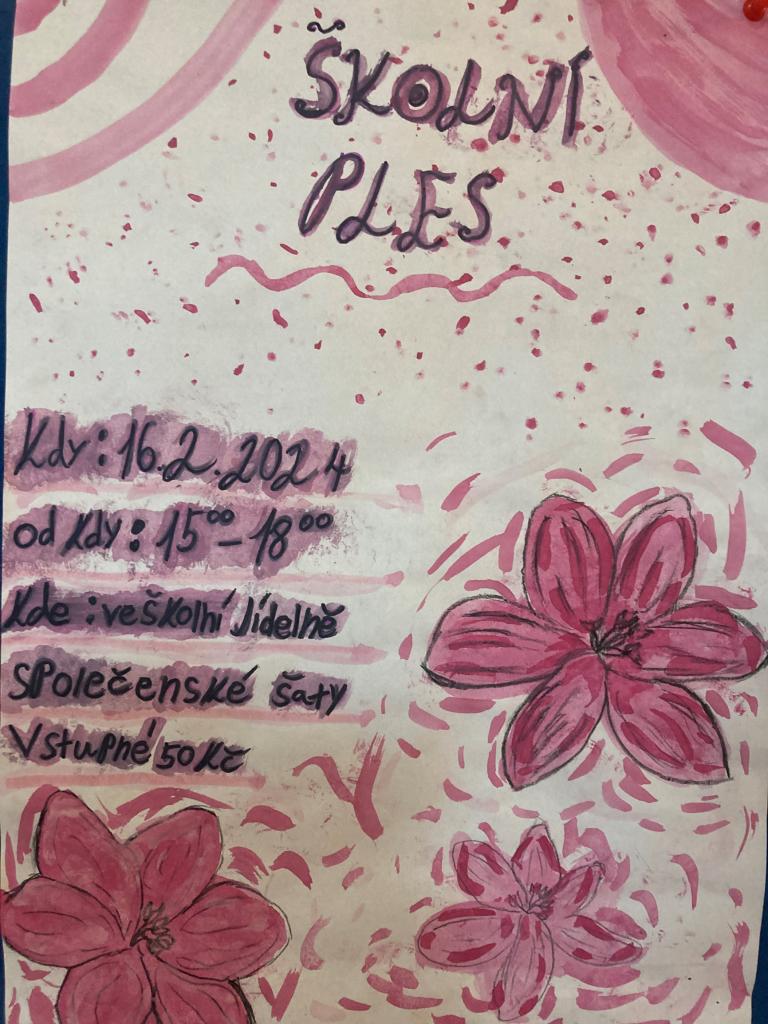 ŠKOLNÍ
PLES
Kdy: 16.2.2024
od Kdy: 15⁰⁰ - 18⁰⁰
Kde: ve školní Jídelně
SPolečenské šaty
Vstupné 50 Kč